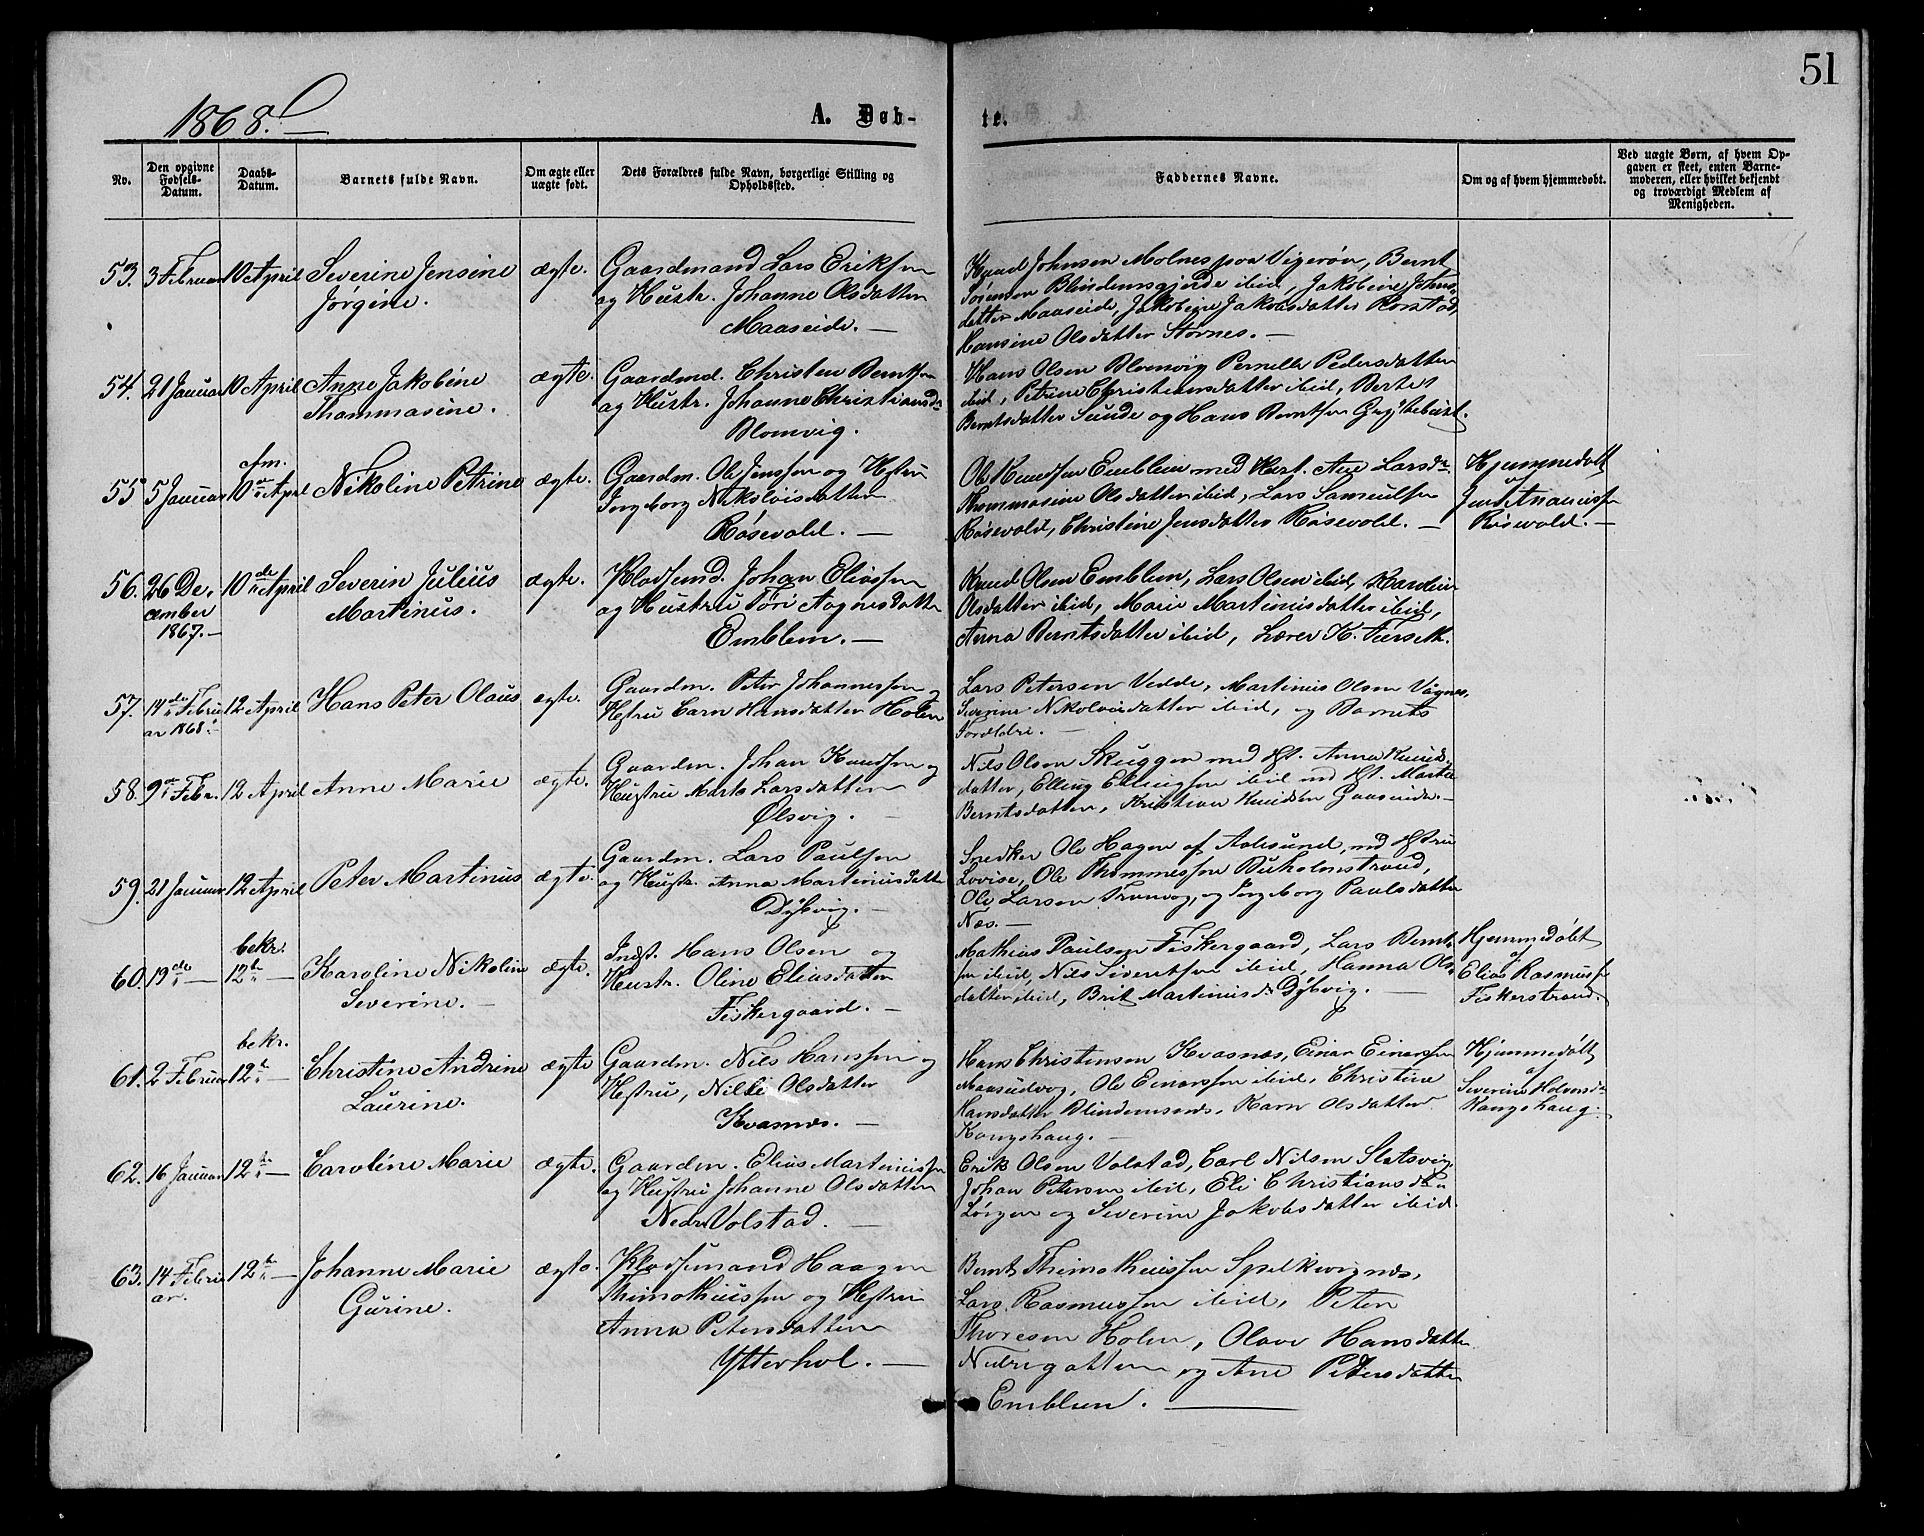 51
1868.
A. Døb-
te.
No.
Den opgivne Fødsels-Datum.
Daabs-Datum.
Barnets fulde Navn.
Om ægte eller uægte født.
Dets Forældres fulde Navn, borgerlige Stilling og Opholdssted.
Faddernes Navne.
Om og af hvem hjemmedøbt.
Ved uægte Børn, af hvem Opgaven er skeet, enten Barnemoderen, eller hvilket bekjendt og troværdigt Medlem af Menigheden.
53. 3 Februar 10 April Severine Jensine ægte. Gaardmand Lars Eriksen
Jørgine. og Hustr. Johanne Olsdatter
Maaseide. —
Knud Johnsen Molnes paa Vigerøen, Bernt
Sørensen Blindemsgjerde ibid, Jakobine Johns-
datter Maaseide, Jakobine Jakobsdatter Rørstad,
Hansine Olsdatter Størnes. —
54. 21 Januar 10 April Anne Jakobine ægte. Gaardmd. Christen Berntsen
Thommasine. og Hustr. Johanne Christiansdr
Blomvig.
Hans Olsen Blomvig Pernille Pedersdatter
ibid, Petrine Christiansdatter ibid, Berte
Berntsdatter Sunde og Hans Berntsen
cfm.
55 5 Januar 10de April Nikoline Petrine ægte. Gaardm. Ole Jenssen og Hustru
Ingeborg Nikolaisdatter
Røsevold. —
Ole Knudsen Emblem med Hust. Ane Larsdr
Thommasine Olsdatter ibid, Lars Samuelsen
Røsevold, Christine Jensdatter Røsevold. —
Hjemmedøbt
af
Røsevold. —
56. 26 De- 10de April Severin Julius ægte. Plodsemd. Johan Eliassen
cember Martinus. og Hustru Tøri Aagesdatter
1867. — Emblem. —
Knud Olsen Emblem, Lars Olsen ibid, Karoline
Olsdatter ibid, Marie Martinusdatter ibid,
Anna Berntsdatter ibid, Lærer K.
57. 14de Febru 12 April Hans Peter Olaus ægte. Gaardm. Peter Johannessen og
ar 1868. Hustru Carn Hansdatter Holen
Lars Petersen Vedde, Martinus Olsen Vågnes,
Severine Nikolaisdatter ibid, og Barnets
Forældre. —
58. 9de Febr. 12 April Anne Marie ægte. Gaardm. Johan Knudsen og
Hustru Marte Larsdatter
Ølsvig. —
Nils Olsen Skuggen med Hst. Anna Knuds-
datter, Elling Ellingsen ibid md Hst. Marte
Berntsdatter, Kristian Knudsen Gaaseide. —
59. 21 Januar 12 April Peter Martinus ægte. Gaardm. Lars Paulsen
og Hustr. Anna Martinusdatter
Dybvig. —
Snedker Ole Hagen af Aalesund, md Hstru
Lovise, Ole Thommessen Buholmstrand,
Ole Larsen Tranvog, og Ingeborg Paulsdatter
Næs. —
bekr.
60. 19de — 12te — Karoline Nikoline ægte. Indst. Hans Olsen og
Severine. — Hustr. Oline Eliasdatter
Fiskergaard. —
Mathias Paulsen Fiskergaard, Lars Bernt-
sen ibid, Nils Sivertsen ibid, Hanna Ols-
datter ibid, Brit Martinusdr Dybvig. —
Hjemmedøbt
af
Elias Rasmussen
Fiskerstrand.
bekr.
61. 2 Februar 12te — Christine Andrine ægte Gaardm. Nils Hanssen og
Laurine. Hustru, Nille Olsdatter
Kvasnes. —
Hans Christensen Kvasnæs, Einar Einarsen
Maaseidvog, Ole Einarssen ibid, Christine
Hansdatter Blindemsnes, Karn Olsdatter
Kongshaug. —
Hjemmedøbt
af
Severine
Kongshaug.
62. 16 Januar 12te — Caroline Marie ægte. Gaardm. Elias Martinussen
og Hustru Johanne Olsdatter
Nedre Volstad. —
Erik Olsen Volstad, Carl Nilsen Sletsvig,
Johan Petersen ibid, Eli Christiansdtr
Lorgen og Severine Jakobsdatter ibid.
63. 14 Febru 12te — Johanne Marie ægte. Plodsemand Haagen
ar. Gurine. Thimothiussen og Hustru
Anna Petersdatter
Ytterhol. —
Bernt Thimothiussen Spelkvignes,
Lars Rasmussen ibid, Peter
Thoresen Holen, Olave Hansdatter
Nedregotten og Ane Petersdatter
Emblem. —